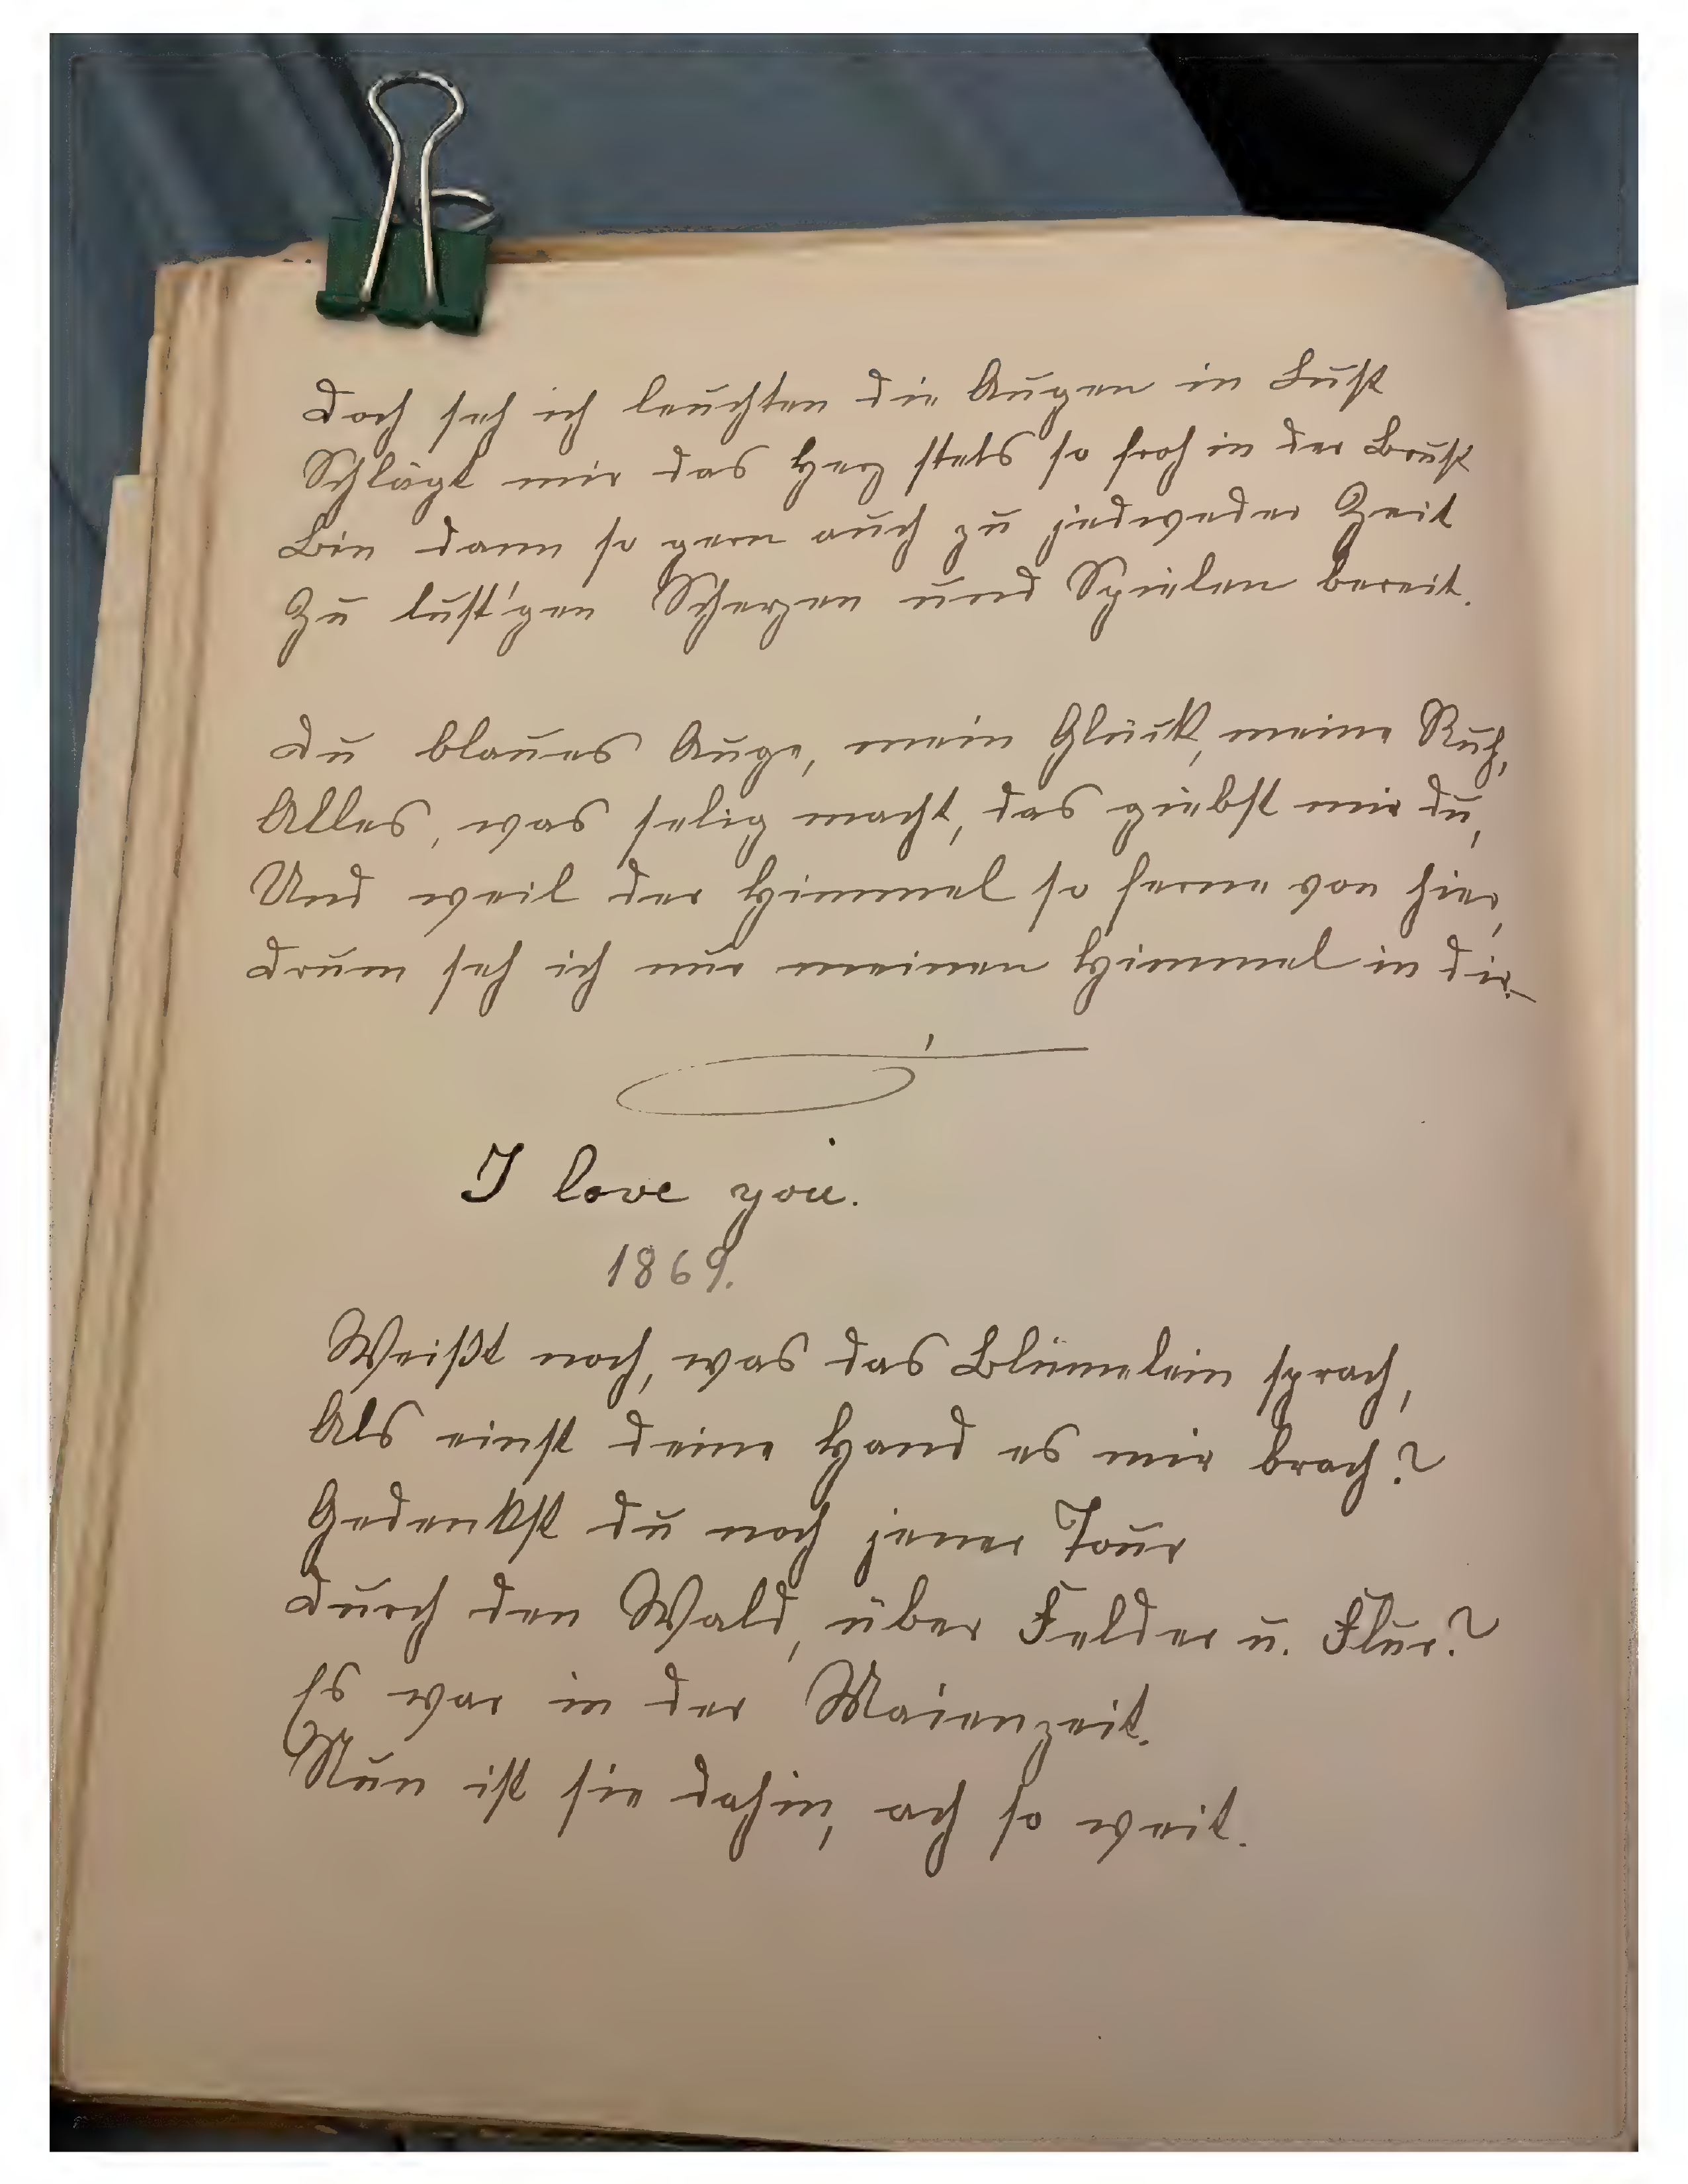 Doch seh ich leuchten die Augen in Lust
Schlägt mir das Herz stets so froh in der Brust
Bin dann so gern auch zu jedweder Zeit
Zu lust'gen Scherzen und Spielen bereit.
Du blaues Auge, mein Glück, meine Ruh,
Alles, was selig macht, das giebst mir du,
Und weil der Himmel so ferne von hier,
Drum seh ich nur meinen Himmel in dir.
I love you.
1869.
Weißt noch, was das Blümelein sprach,
Als einst deine Hand es mir brach?
Gedenkst du noch jener Tour
Durch den Wald, über Felder u. Flur?
Es war in der Maienzeit.
Nun ist sie dahin, ach so weit.